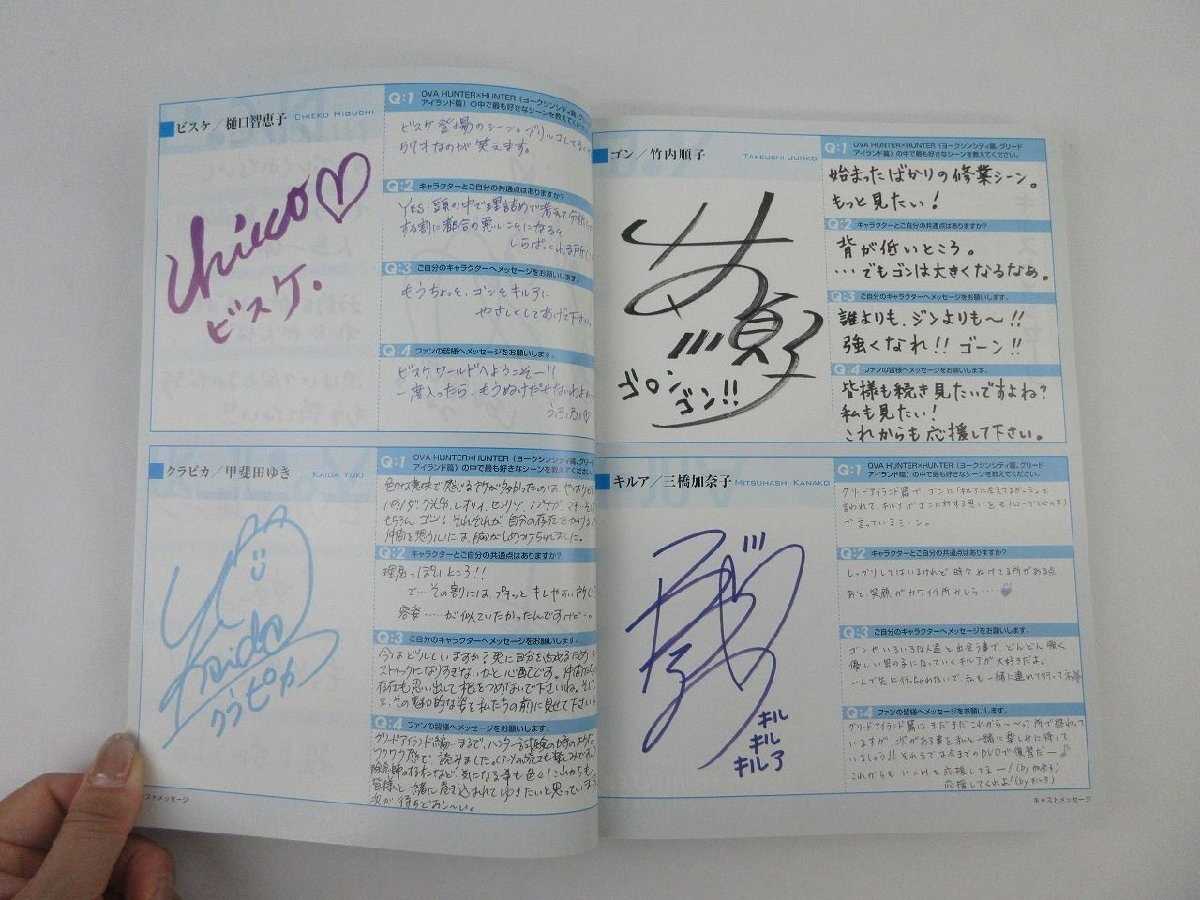 ビスケ/樋口智恵子 CHIEKO HIGUCHI
Chieco♡
ビスケ.
Q:1 OVA HUNTER×HUNTER(ヨークシンシティ篇、グリード
アイランド篇)の中で最も好きなシーンを教えてください。
ビスケ登場のシーン。
りすなのが笑えます。
Q:2 キャラクターとご自分の共通点はありますか?
YES.頭の中で理詰めで考えて
する割に都合の悪いことになると
Q:3 ご自分のキャラクターへメッセージをお願いします。
もうちょっと、ゴンとキルアに
やさしくしてあげて下さい。
Q:4 ファンの皆様へメッセージをお願いします。
ビスケワールドへようこそー!
一度入ったら、もうぬけだせないわよ
うふふ
クラピカ/甲斐田ゆき KAIDA YUKI
Yuki
Kaida
クラピカ
Q:1 OVA HUNTER×HUNTER(ヨークシンシティ篇、グリード
アイランド篇)の中で最も好きなシーンを教えてください。
色々な意味で感じる所が多かったのは、やはり
もちろん、ゴン!それぞれが自分の存在を
仲間を想う心には、胸がしめつけられました。
Q:2 キャラクターとご自分の共通点はありますか?
理屈っぽいところ!!
で…その割には、プチッとキレやすい所
容姿……が似ていたかったんですけど…。
Q:3 ご自分のキャラクターへメッセージをお願いします。
今はどうしていますか?
ストイックになりすぎないかと心配です。仲間
存在も思い出して
その魅力的な姿を私たちの前に見せて下さい
Q:4 ファンの皆様へメッセージをお願いします。
グリードアイランド編、まるで、ハンター試験の時の
ワクワク感で、読みました。
除念師の存在など、気になる事も色々!これからも
皆様と一緒に巻き込まれてゆきたいと思っています
次が待ちどおし〜い。
キャストメッセージ
ゴン/竹内順子 TAKEUSHI JUNKO
竹順子
ゴロン
ゴン!!
Q:1 OVA HUNTER×HUNTER(ヨークシンシティ篇、グリード
アイランド篇)の中で最も好きなシーンを教えてください。
始まったばかりの修業シーン。
もっと見たい!
Q:2 キャラクターとご自分の共通点はありますか?
背が低いところ。
…でもゴンは大きくなるなあ。
Q:3 ご自分のキャラクターへメッセージをお願いします。
誰よりも、ジンよりも〜!!
強くなれ!!ゴーン!!
Q:4 ファンの皆様へメッセージをお願いします。
皆様も続き見たいですよね?
私も見たい!
これからも応援して下さい。
キルア/三橋加奈子 MITSUHASH KANAKO
キル
キル
キルア
Q:1 OVA HUNTER×HUNTER(ヨークシンシティ篇、グリード
アイランド篇)の中で最も好きなシーンを教えてください。
グリードアイランド篇で ゴンに「キルアに会えてよかった」と
言われて、キルアがゴンに対する思いをモノローグ(心の声)
で言っているシーン。
Q:2 キャラクターとご自分の共通点はありますか?
しっかりしてはいるけれど 時々ぬけてる所がある点
あと、笑顔がカワイイ所かしら……♥
Q:3 ご自分のキャラクターへメッセージをお願いします。
ゴンやいろいろな人達と出会う事で、どんどん強く
優しい男の子になっていくキルアが大好きだよ。
…1人で先に行っちゃわないで、私も一緒に連れて行ってネ
Q:4 ファンの皆様へメッセージをお願いします。
グリードアイランド篇はまだまだこれから〜って所で終わって
いますが、次がある事を私も一緒に楽しみに待って
いましょう♪ それまでは今までのDVDで復習だー♪
これからも H×Hを応援してネー!(by加奈子)
応援してくれよ!(byキルア)
キャストメッセージ